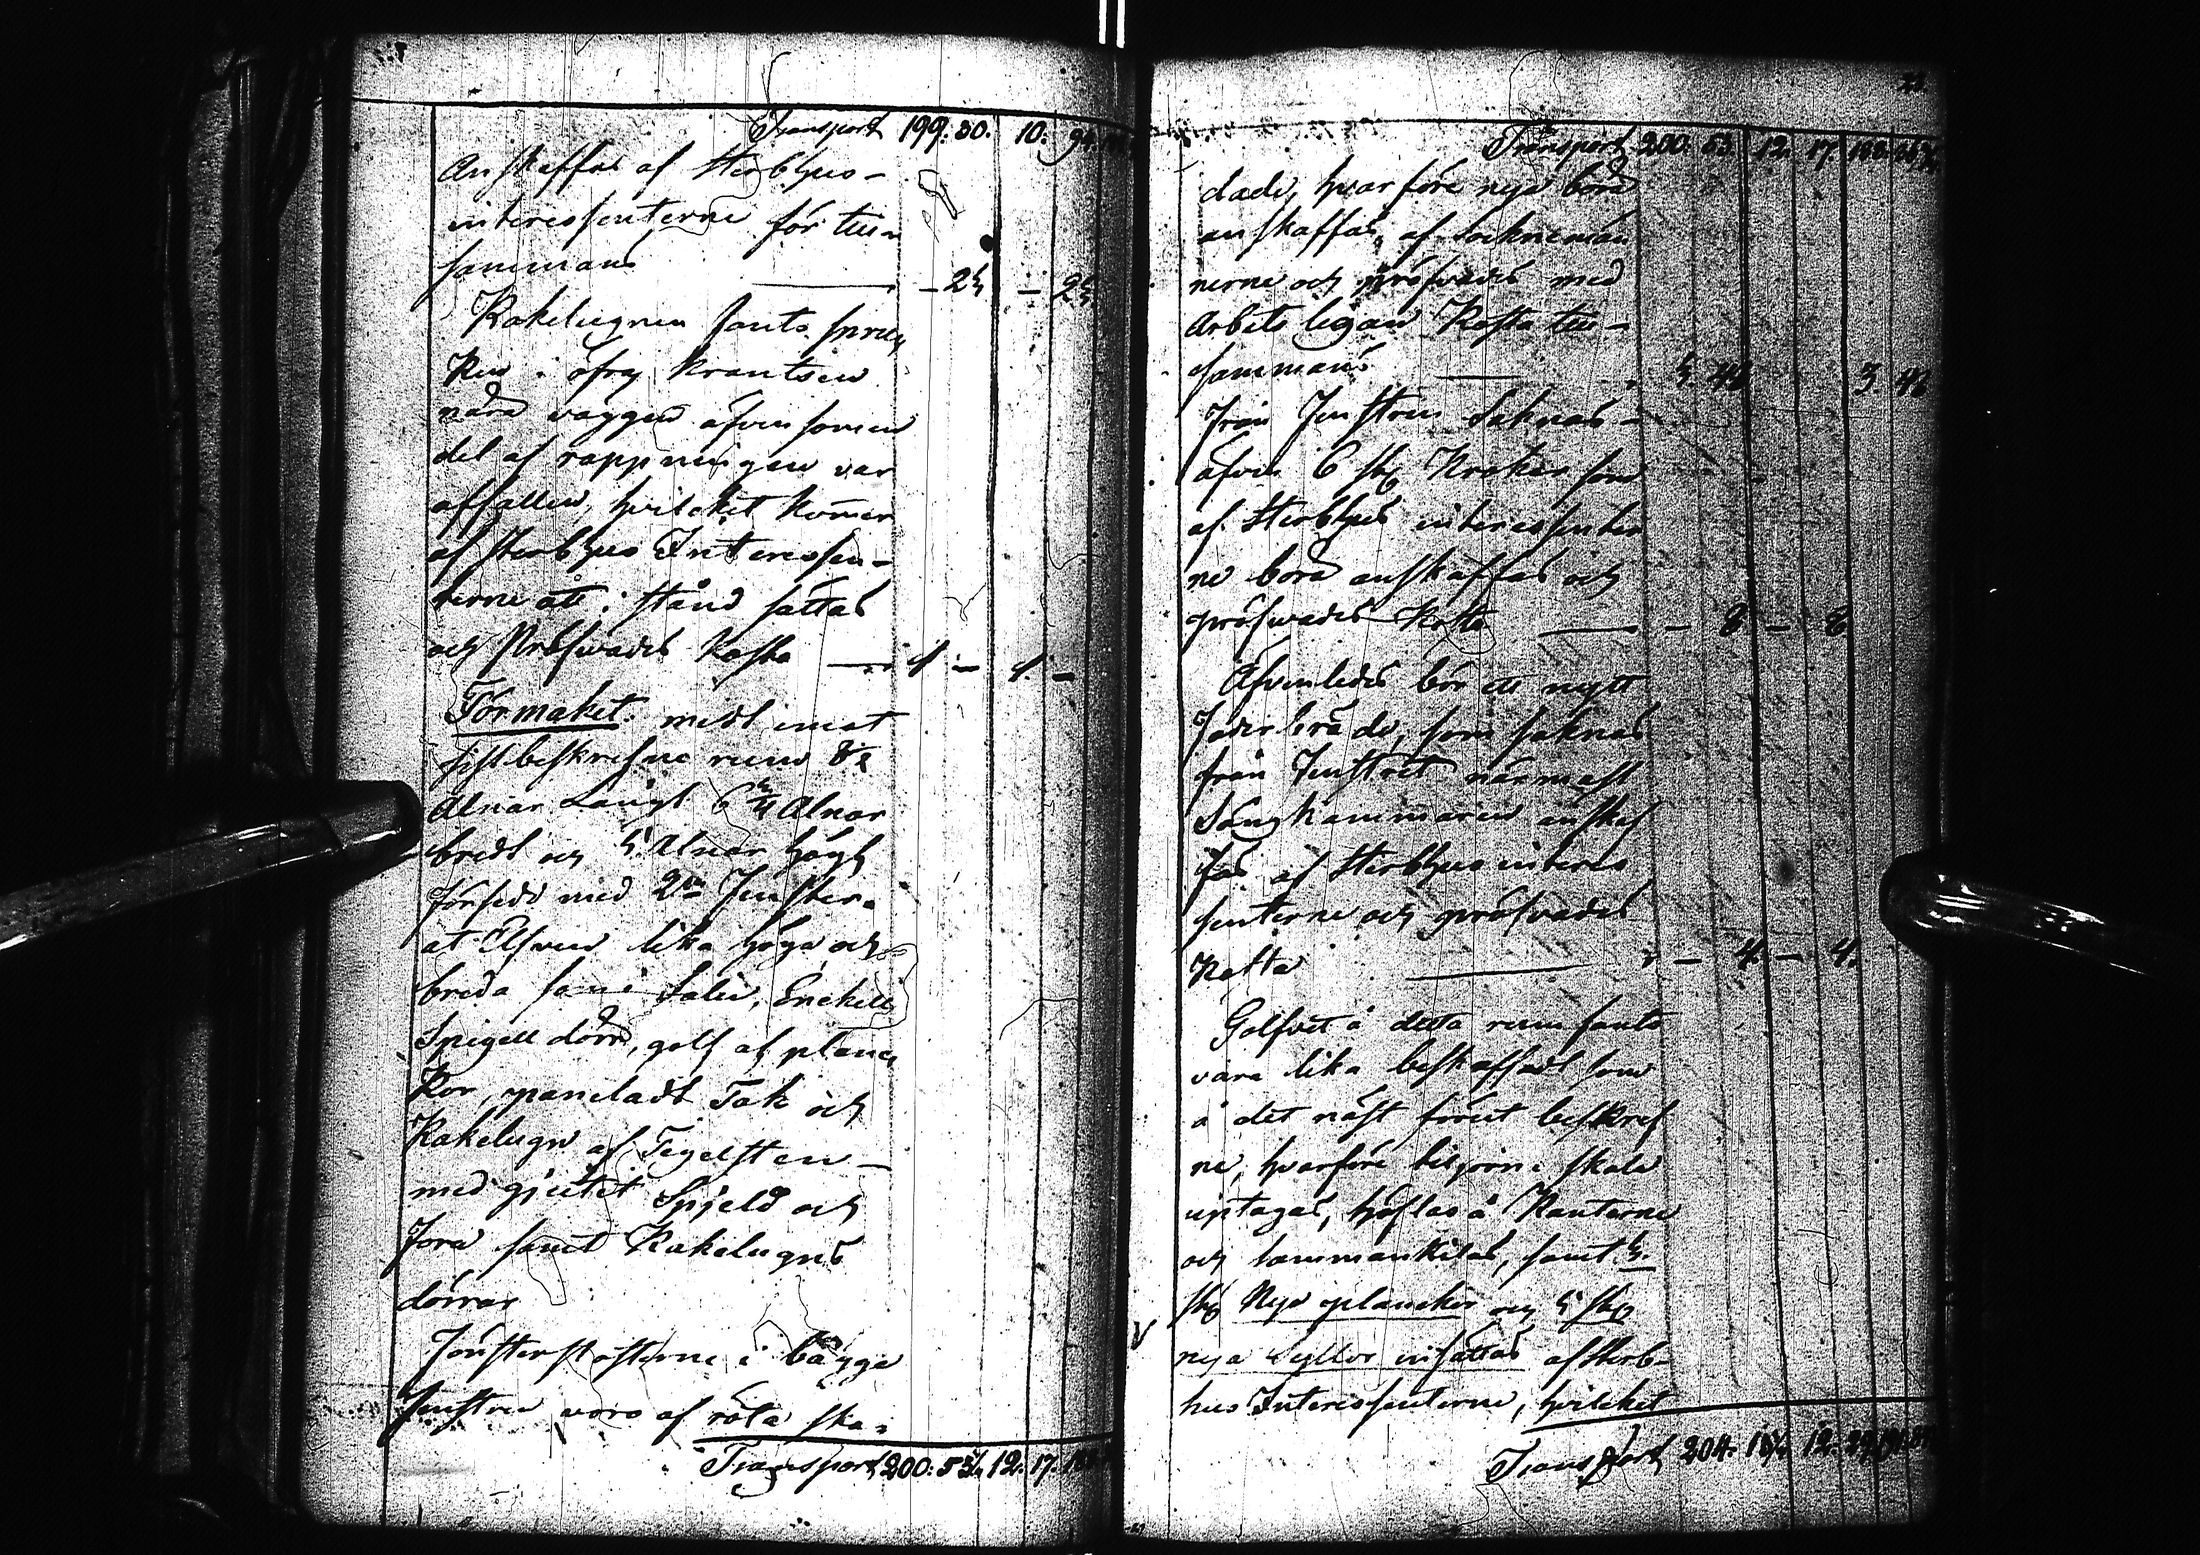 Transport 199. 30. 10. 94.
Anskaffas af Sterbhus-
interessenterne för till-
sammans — 24 — 24.
Kakelugnen fants spruc-
ken i öfra Krantsen
nära väggen äfven som en
del af rappningen var
affallen, hvilcket kommer
af Sterbhus Interessen-
terne att i stånd sättas
och pröfvades kosta — 1. — 1. —
Förmaket: midt emot
sistbeskrefne rum 8
Alnar Långt 6 Alnar
bredt och 5 Alnar högt
försedt med 2ne Fenster
åt Elfven lika höga och
breda som i Salen, Enckell
Spigell dörr, golf af planc-
kor, paneladt Tak och
Kakelugn af Tegelsten
med gjutit Spjeld och
Fora samt Kakelugns
dörrar
Fönsterposterne i bägge
fenstren voro af röta ska-
Transport 200. 53. 12. 17.
Transport 200. 53. 12. 17.
dade, hvarföre nya böra
anskaffas af Sockneman-
nerne och pröfvades med
Arbets legan Kosta till-
sammans — 3 48 3. 48
Från Fenstren Saknas
äfven 6 st Krokar som
af Sterbhus interessenter
ne böra anskaffas och
pröfvades Kosta — 8 — 8
Äfvenledes bör ett nytt
Foderbräde, som saknas
från Fenstret närmast
Sängkammaren anskaf
fas af Sterbhus interes
senterne och pröfvades
Kosta — 4. — 4.
Golfvet i detta rum fants
vara lika beskaffadt som
i det näst förut beskref
ne, hvarföre tiljorne skola
uptagas, höflas i Kanterne
och sammankilas, samt 3.
st Nya planckor och 5 st
nya Syllor insättas af Sterb-
hus Interessenterne, hvilcket
Transport 204. 12. 29.